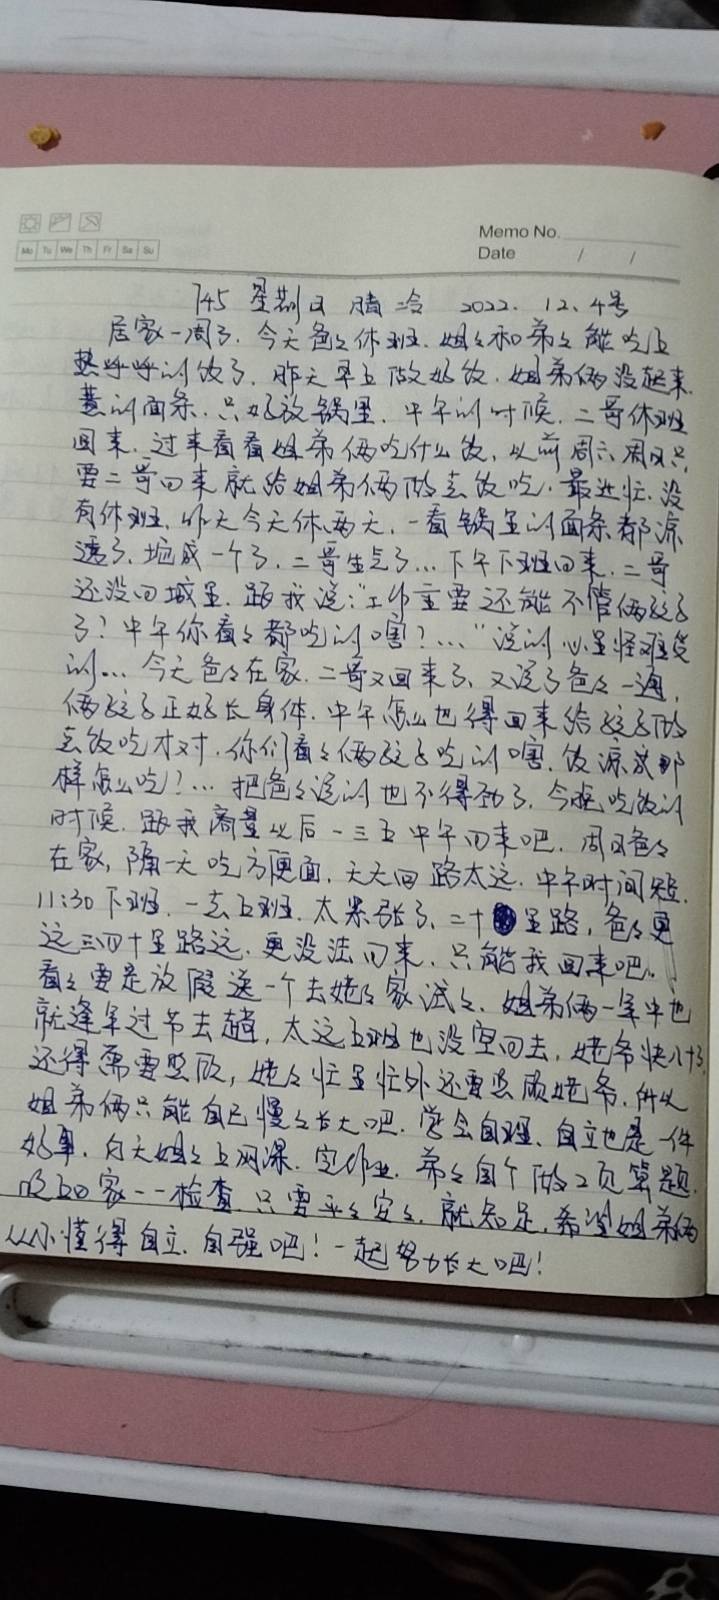 Memo No.
Mo Tu We Th Fr Sa Su
Date / /
745 星期日 晴冷 2022.12.4号
居家一周了.今天爸々休班.姐々和弟々能吃上
热呼呼的饭了.昨天早上做好饭.姐弟俩没起来.
煮的面条.只好放锅里.中午的时候.二哥休班
回来.过来看看姐弟俩吃什么饭,以前周六周日只
要二哥回来就给姐弟俩做点饭吃.最近忙.没
有休班.昨天今天休两天.一看锅里的面条都凉
透了.坨成一个了.二哥生气了…下午下班回来.二哥
还没回城里.跟我说:"工作重要还能不管俩孩子
了?中午你看々都吃的啥?…"说的心里怪难受
的…今天爸々在家.二哥又回来了.又说了爸々一遍,
俩孩子正好长身体.中午怎么也得回来给孩子做
点饭吃才对.你们看々俩孩子吃的啥.饭凉成那
样怎么吃!…把爸々说的也不得劲了.今晚吃饭的
时候.跟我商量以后一三五中午回来吧.周日爸々
在家,隔一天吃方便面.天天回路太远.中午时间短.
11:30下班.一点上班.太紧张了.二十里路,爸々更
远三四十里路远.更没法回来.只能我回来吧.
看々要是放假送一个去姥々家试々.姐弟俩一年中也
就逢年过节去趟,太远上班也没空回去,姥爷快八十了,
还得需要照顾,姥々忙里忙外还要照顾姥爷.所以
姐弟俩只能自己慢々长大吧.学会自理.自立也是一件
好事.白天姐々上网课.写作业.弟々自个做2页算题.
晚上回家一一检查.只要平々安々.就知足.希望姐弟俩
从小懂得自立.自强吧!一起努力长大吧!